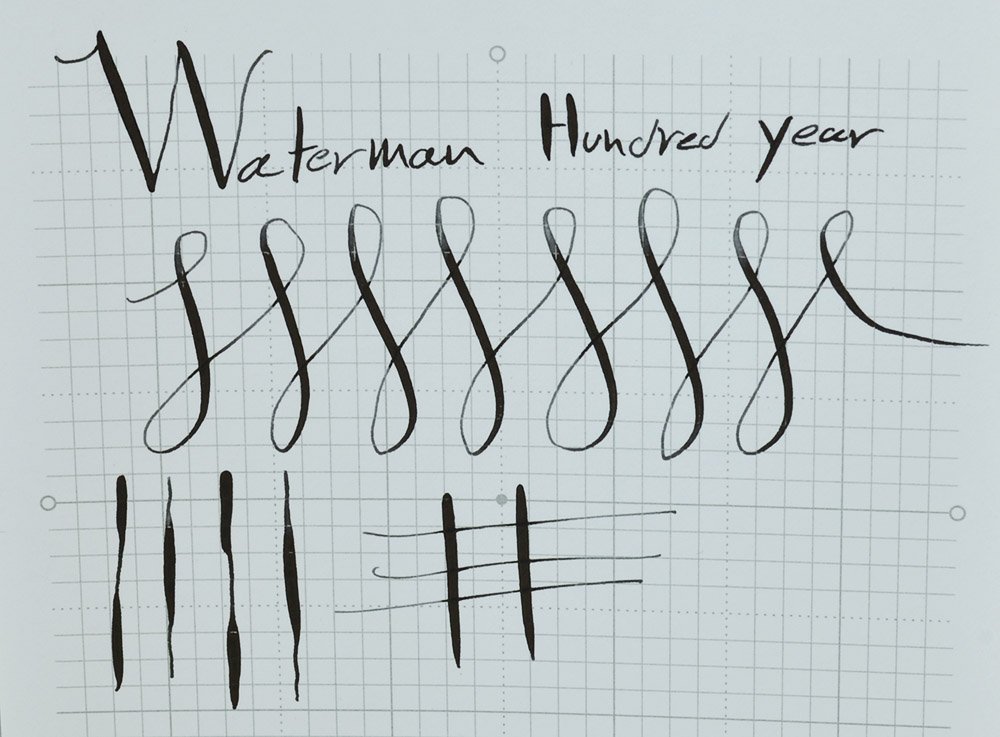 Waterman Hundred year